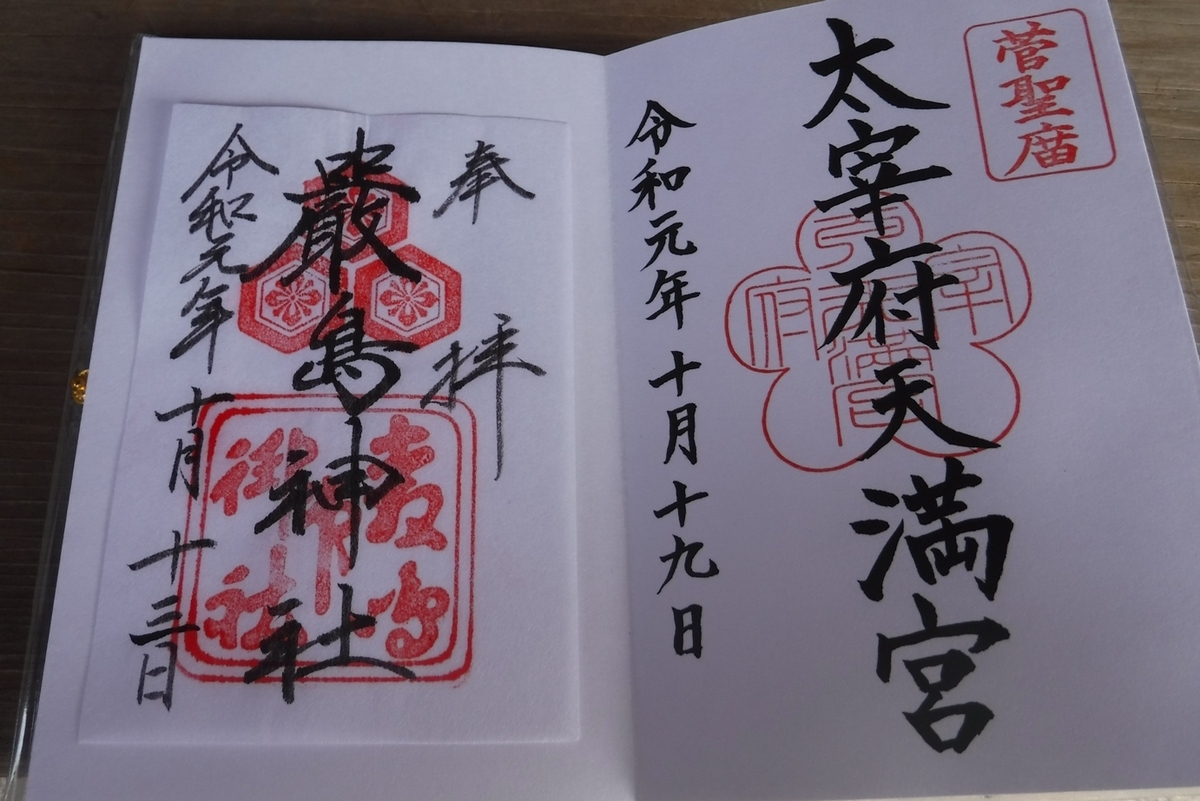 菅聖庿
太宰府天満宮
令和元年十月十九日
奉拝
嚴島神社
令和元年十月十三日